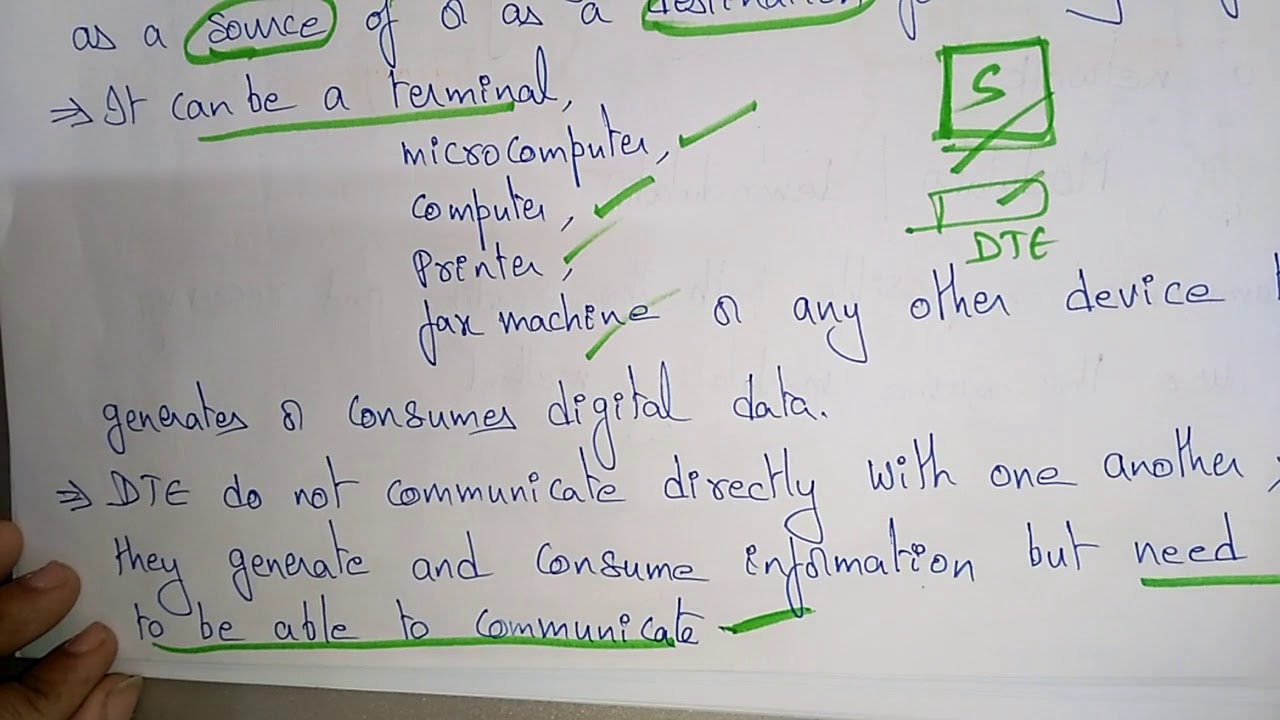 as a source of or as a destination for
⇒ It can be a terminal,
microcomputer,
computer,
Printer,
fax machine or any other device
generates or consumes digital data.
⇒ DTE do not communicate directly with one another;
they generate and consume information but need
to be able to communicate
S
DTE